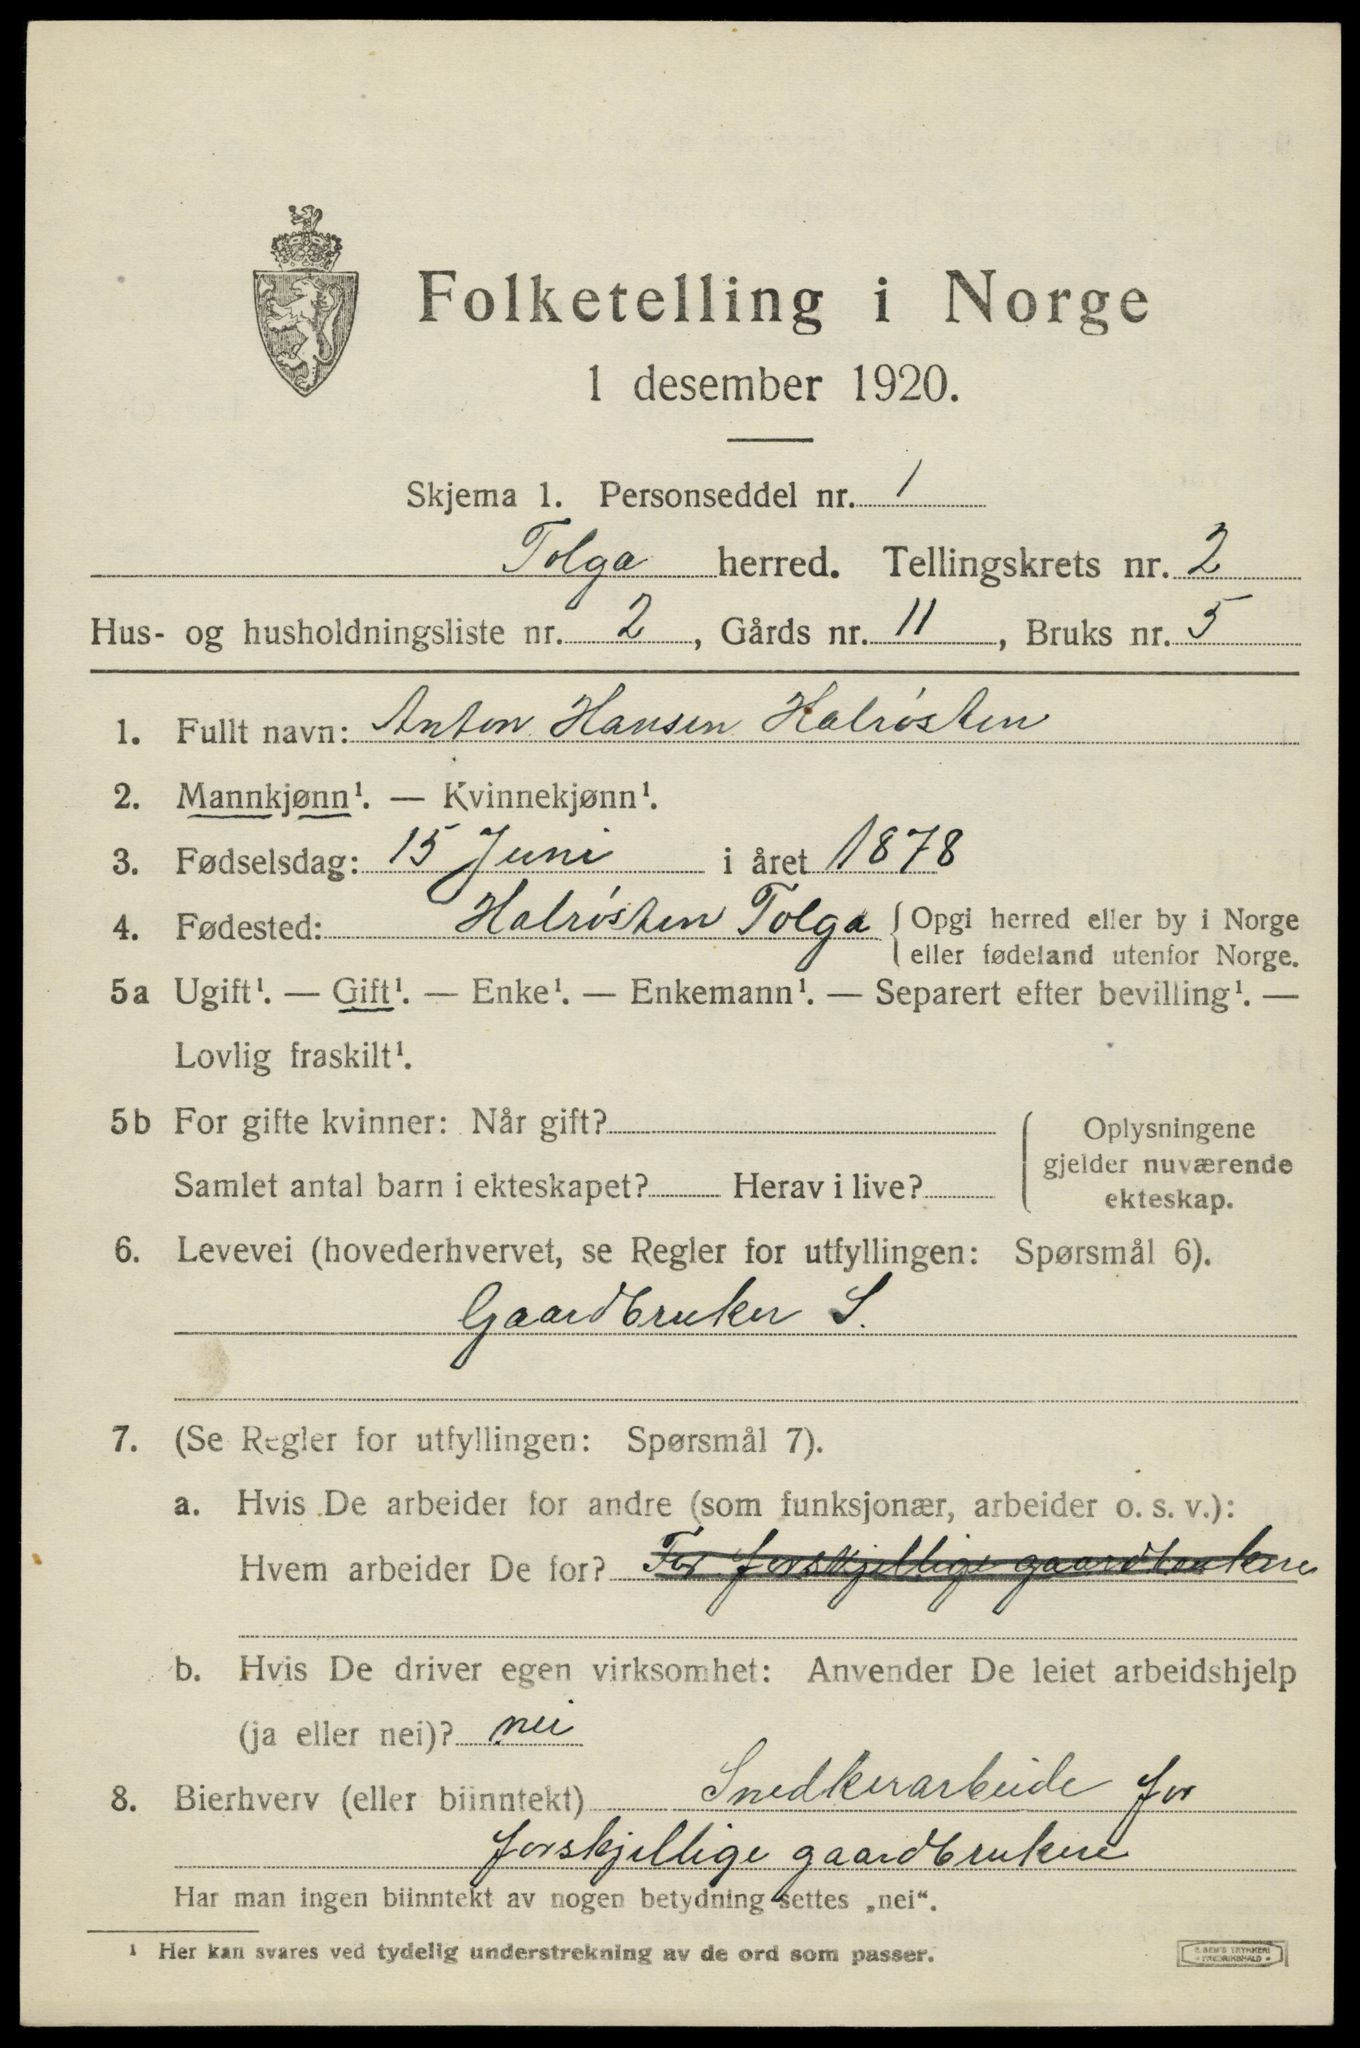 Folketelling i Norge
1 desember 1920.
Skjema 1. Personseddel nr. 1
Tolga herred. Tellingskrets nr. 2
Hus- og husholdningsliste nr. 2, Gårds nr. 11, Bruks nr. 5
1. Fullt navn: Anton Hansen Halrösten
2. Mannkjønn¹. — Kvinnekjønn¹.
3. Fødselsdag: 15 Juni i året 1878
4. Fødested: Halrösten Tolga { Opgi herred eller by i Norge
eller fødeland utenfor Norge.
5a Ugift¹. — Gift¹. — Enke¹. — Enkemann¹. — Separert efter bevilling¹. —
Lovlig fraskilt¹.
5b For gifte kvinner: Når gift?
Samlet antal barn i ekteskapet? Herav i live?
Oplysningene
gjelder nuværende
ekteskap.
6. Levevei (hovederhvervet, se Regler for utfyllingen: Spørsmål 6).
Gaardbruker S.
7. (Se Regler for utfyllingen: Spørsmål 7).
a. Hvis De arbeider for andre (som funksjonær, arbeider o. s. v.):
Hvem arbeider De for? For forskjellige gaardbrukere
b. Hvis De driver egen virksomhet: Anvender De leiet arbeidshjelp
(ja eller nei)? nei
8. Bierhverv (eller biinntekt) Snedkerarbeide for
forskjellige gaardbrukere
Har man ingen biinntekt av nogen betydning settes „nei“.
¹ Her kan svares ved tydelig understrekning av de ord som passer.
E. SEM'S TRYKKERI
FREDRIKSHALD